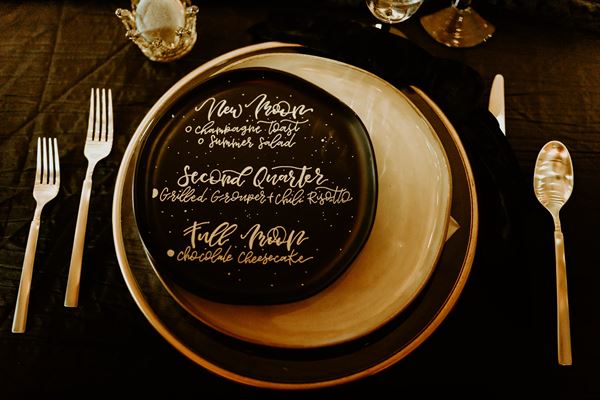 New Moon
Champagne Toast
Summer Salad
Second Quarter
Grilled Grouper + Chili Risotto
Full Moon
Chocolate Cheesecake